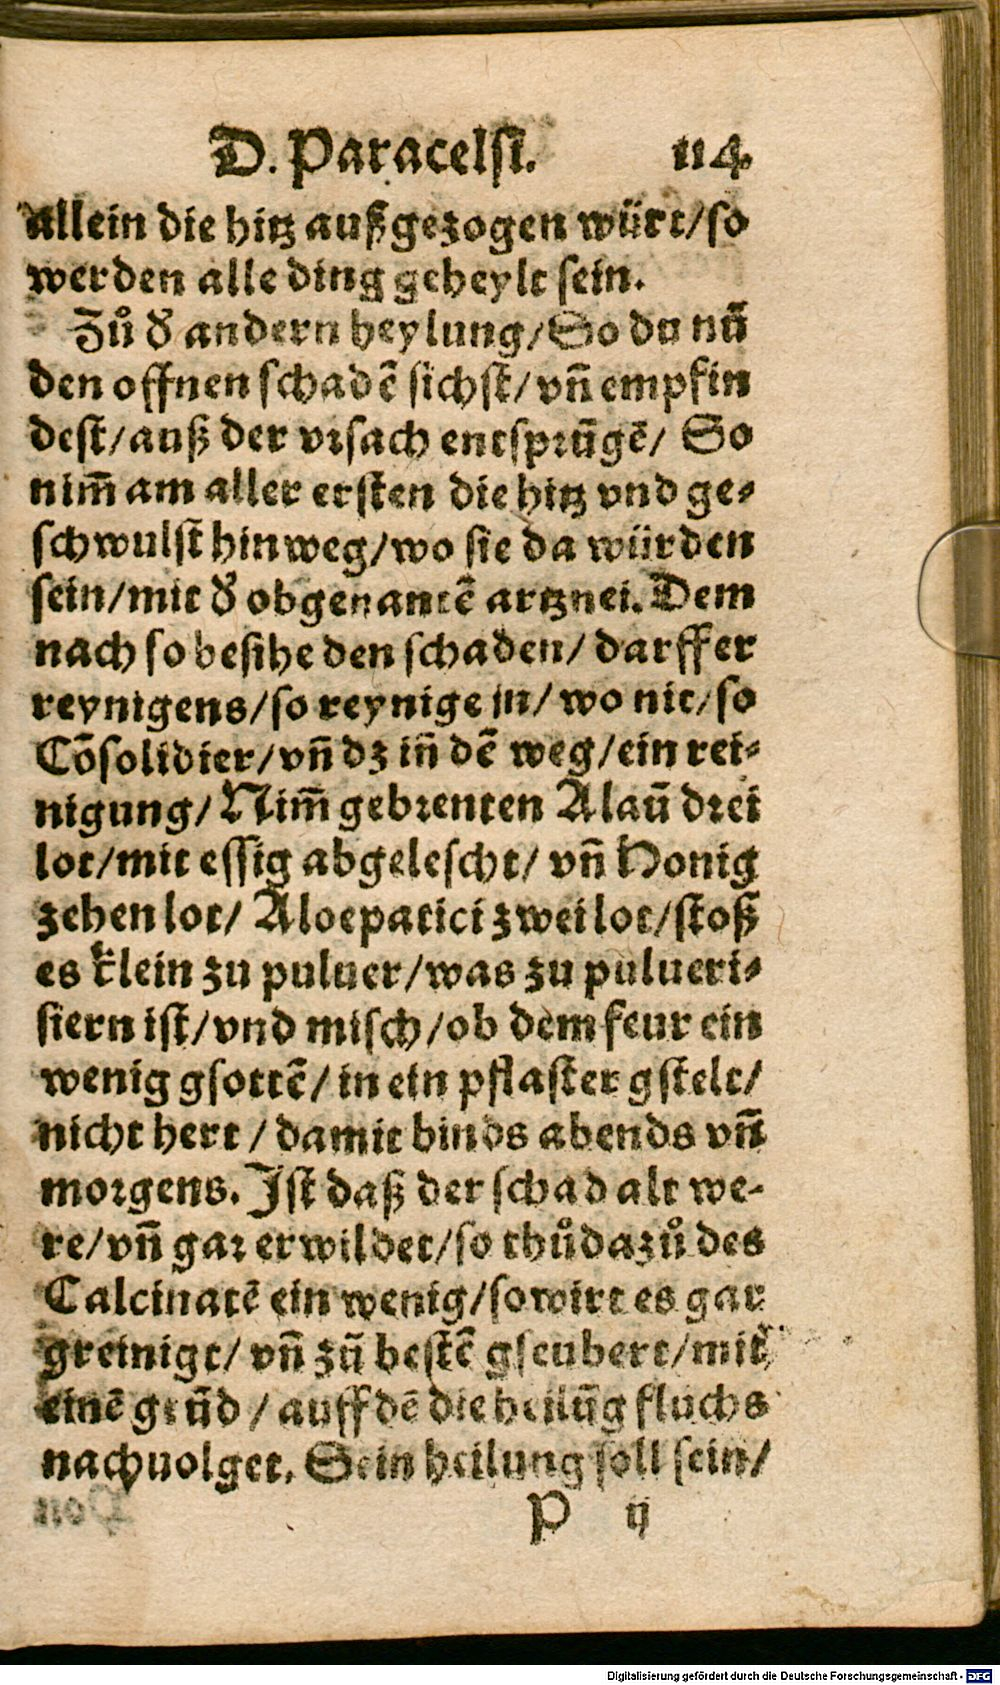 D. Paracelsi. 114.
allein die hitz außgezogen würt/so
werden alle ding geheylt sein.
Zů d̕ andern heylung/So du nū
den offnen schadē sichst/vñ empfin
dest/auß der vrsach entsprūgē/ So
nim̄ am aller ersten die hitz vnd ge-
schwulst hinweg/wo sie da würden
sein/mit d̕ obgenantē artznei. Dem
nach so besihe den schaden/ darff er
reynigens/so reynige jn/ wo nit/so
Cōsolidier/vñ dz in̄ dē weg/ein rei-
nigung/Nim̄ gebrenten Alaū drei
lot/mit essig abgelescht/ vñ Honig
zehen lot/ Aloepatici zwei lot/stoß
es klein zu puluer/was zu pulueri-
siern ist/vnd misch/ob dem feur ein
wenig gsottē/in ein pflaster gstelt/
nicht hert/damit binds abends vñ
morgens. Ist daß der schad alt we-
re/vñ gar erwildet/so thůdazů des
Calcinatē ein wenig/so wirt es gar
greinigt/ vñ zū bestē gseubert/mit
einē grūd/auff dē die heilūg fluchs
nachuolget. Sein heilung soll sein/
P ij
Digitalisierung gefördert durch die Deutsche Forschungsgemeinschaft - DFG